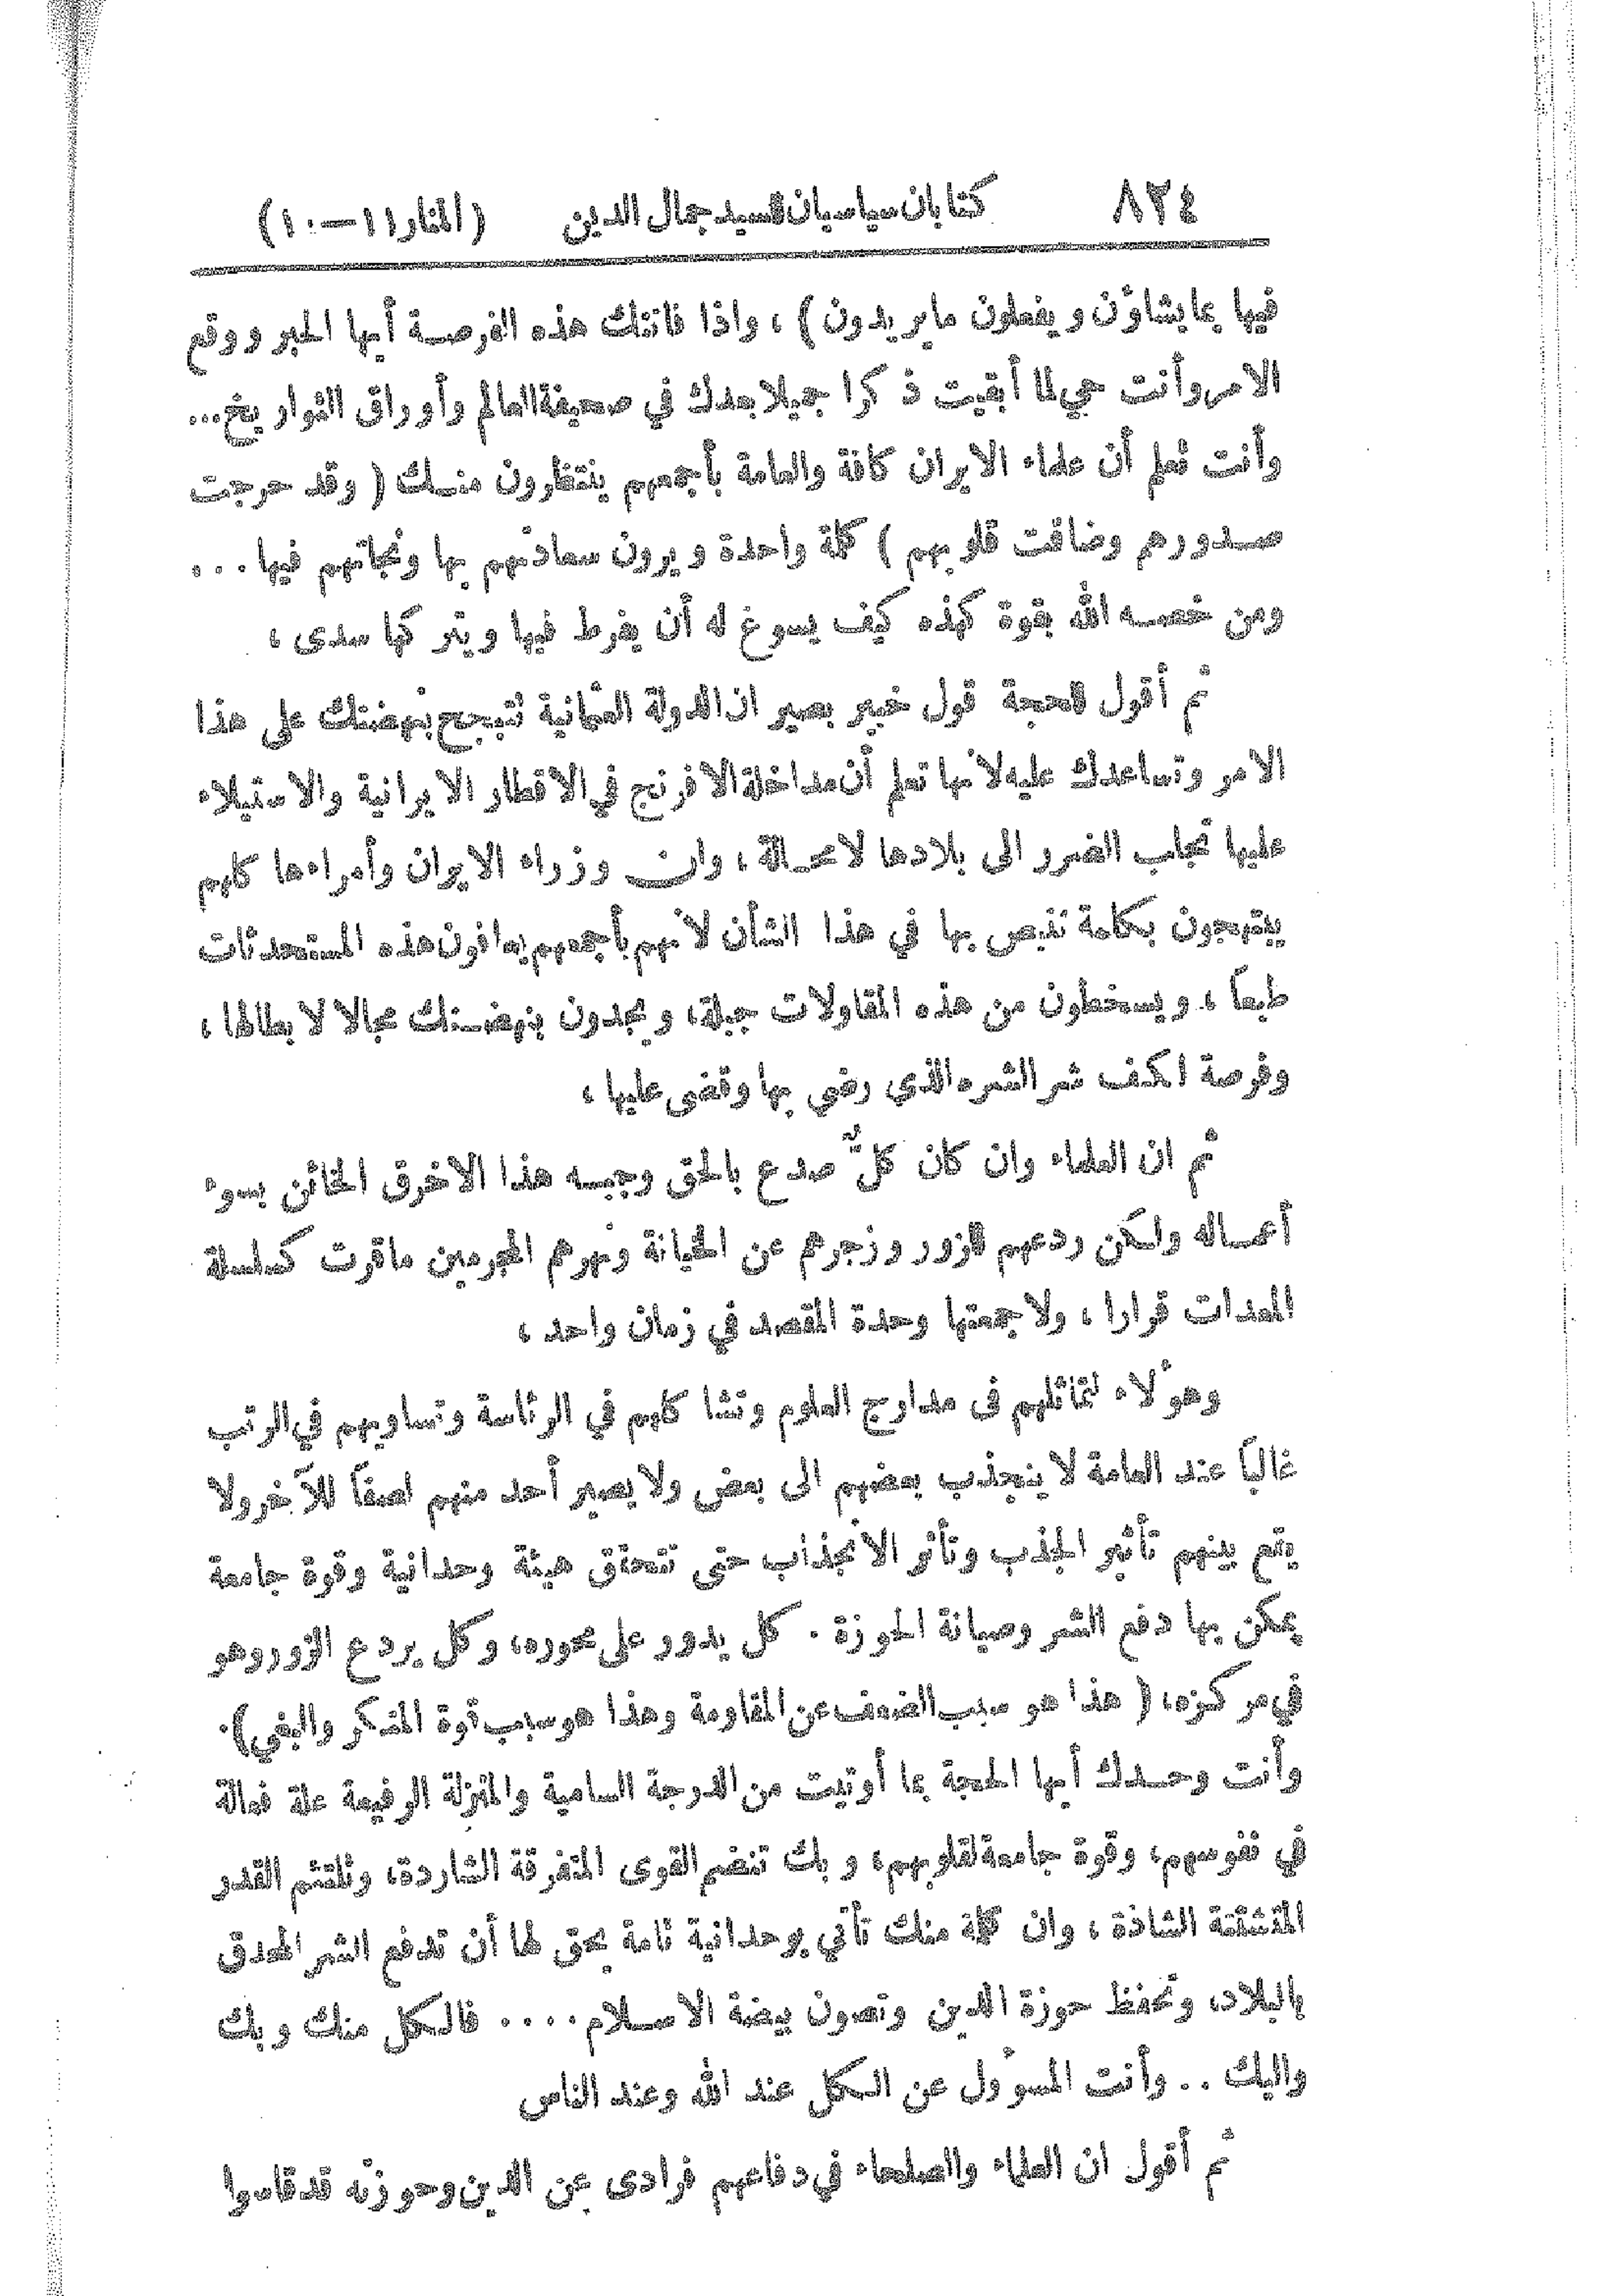 ٨٢٤ كتابان سياسيان للسيد جمال الدين (المنار ١١-١٠)
فيها بما يشاؤن ويفعلون ما يريدون) ، واذا فاتتك هذه الفرصة أيها الحبر ووقع
الامر وأنت حي لما أبقيت ذكرا جميلا بعدك في صحيفة العالم وأوراق التواريخ...
وأنت تعلم أن علماء الايران كافة والعامة بأجمعهم ينتظرون منك ( وقد حرجت
صدورهم وضاقت قلوبهم ) كلمة واحدة ويرون سعادتهم بها ونجاتهم فيها ...
ومن خصه الله بقوة كهذه كيف يسوغ له أن يفرط فيها ويتركها سدى ،
ثم أقول للحجة قول خبير بصير ان الدولة العثمانية تتبجح بنهضتك على هذا
الامر وتساعدك عليه لأنها تعلم أن مداخلة الافرنج في الاقطار الايرانية والاستيلاء
عليها تجلب الضرر الى بلادها لا محالة ، وان وزراء الايران وأمراءها كلهم
يبتهجون بكلمة تنبص بها في هذا الشأن لأنهم بأجمعهم يعافون هذه المستحدثات
طبعاً ، ويسخطون من هذه المقاولات جبلة، ويجدون بنهضتك مجالا لابطالها ،
وفرصة لكف شر الشره الذي رضي بها وقضى عليها ،
ثم ان العلماء وان كان كلٌّ صدع بالحق وجبه هذا الاخرق الخائن بسوء
أعماله ولكن ردعهم للزور وزجرهم عن الخيانة ونهرهم المجرمين ماقرت كسلسلة
المعدات قرارا ، ولا جمعتها وحدة المقصد في زمان واحد ،
وهؤلاء لتماثلهم فى مدارج العلوم وتشاكلهم في الرئاسة وتساويهم في الرتب
غالباً عند العامة لا ينجذب بعضهم الى بعض ولا يصير أحد منهم لصقاً للآخر ولا
يقع بينهم تأثير الجذب وتأثر الانجذاب حتى تتحقق هيئة وحدانية وقوة جامعة
يمكن بها دفع الشر وصيانة الحوزة . كل يدور على محوره، وكل يردع الزور وهو
في مركزه، ( هذا هو سبب الضعف عن المقاومة وهذا هو سبب قوة المنكر والبغي).
وأنت وحدك أيها الحجة بما أوتيت من الدرجة السامية والمنزلة الرفيعة علة فعالة
في نفوسهم، وقوة جامعة لقلوبهم، وبك تنضم القوى المتفرقة الشاردة، وتلتئم القدر
المتشتتة الشاذة ، وان كلمة منك تأتي بوحدانية تامة يحق لها أن تدفع الشر المحدق
بالبلاد، وتحفظ حوزة الدين وتصون بيضة الاسلام .... فالكل منك وبك
واليك .. وأنت المسؤول عن الكل عند الله وعند الناس
ثم أقول ان العلماء والصلحاء في دفاعهم فرادى عن الدين وحوزته قد قاسوا